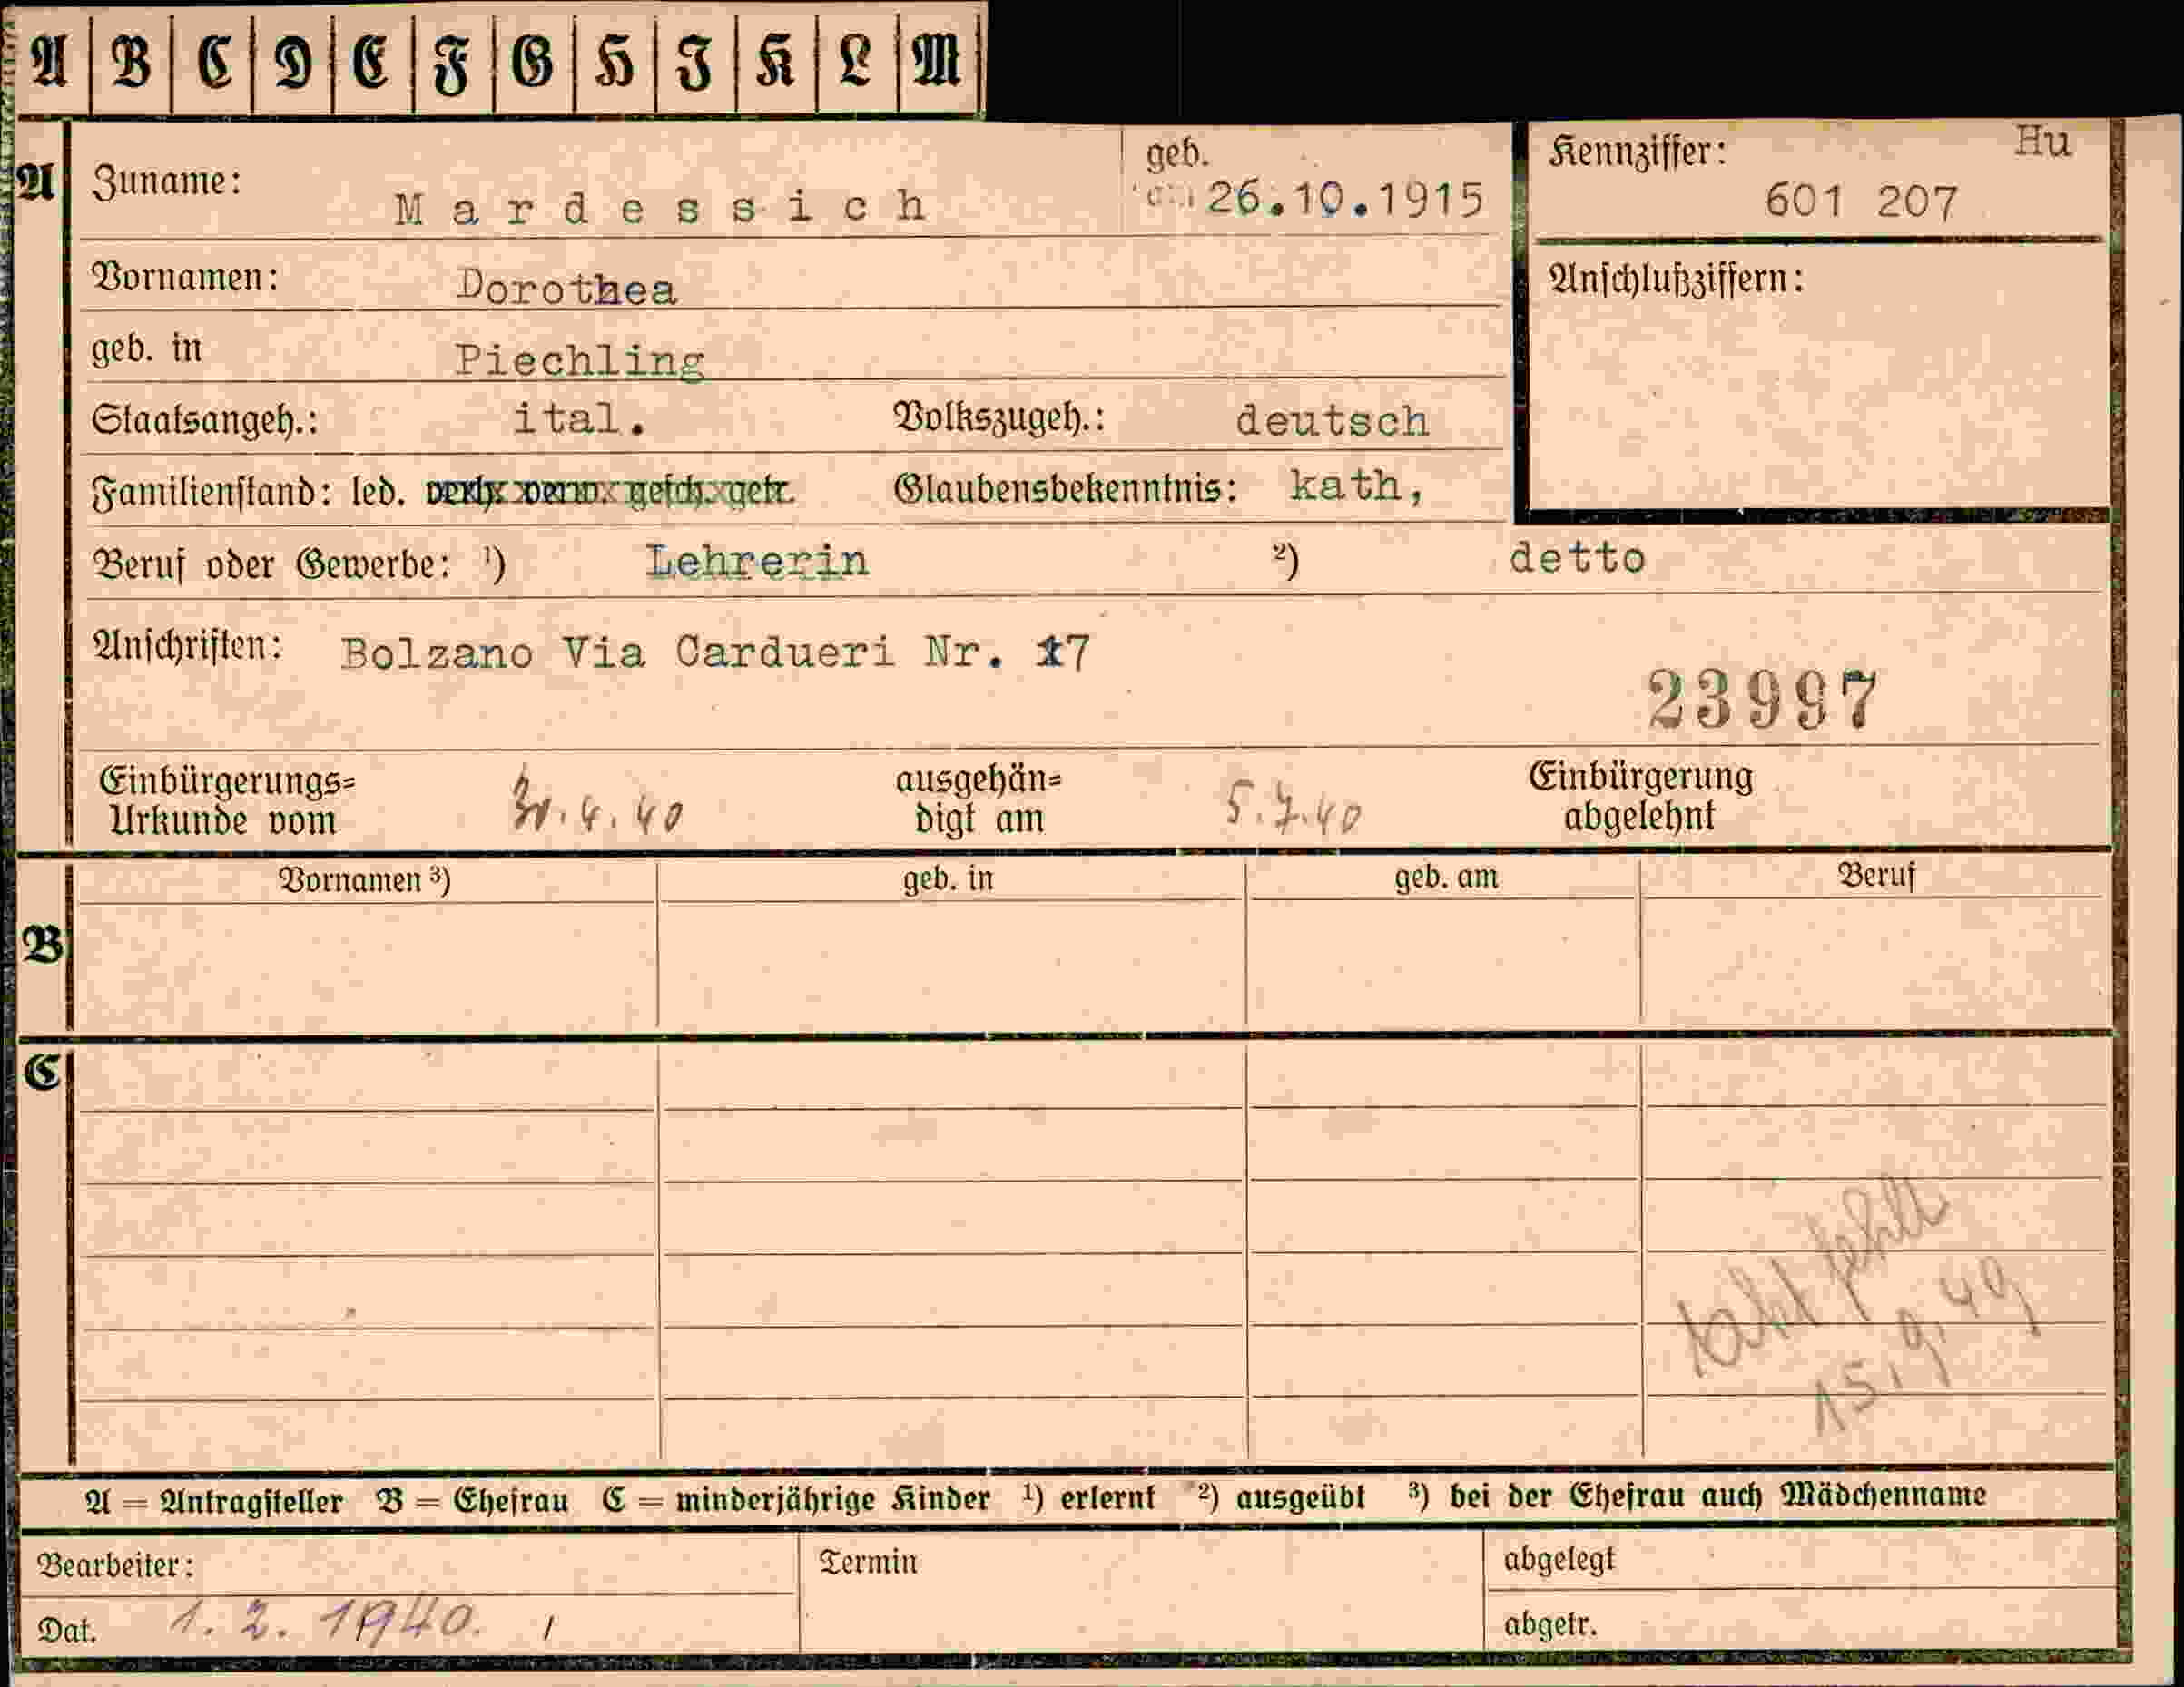 A B C D E F G H I K L M
A
Zuname: Mardessich geb. am 26.10.1915
Kennziffer: Hu
601 207
Vornamen: Dorothea
Anschlußziffern:
geb. in Piechling
Staatsangeh.: ital. Volkszugeh.: deutsch
Familienstand: led. verh. verw. gesch. getr. Glaubensbekenntnis: kath,
Beruf oder Gewerbe: ¹) Lehrerin ²) detto
Anschriften: Bolzano Via Cardueri Nr. 17
23997
Einbürgerungs=
Urkunde vom .4.40
ausgehän=
digt am 5.7.40
Einbürgerung
abgelehnt
Vornamen ³) geb. in geb. am Beruf
B
C
fehlt
15.9.49
A = Antragsteller B = Ehefrau C = minderjährige Kinder ¹) erlernt ²) ausgeübt ³) bei der Ehefrau auch Mädchenname
Bearbeiter: Termin abgelegt
Dat. 1.2.1940. abgetr.